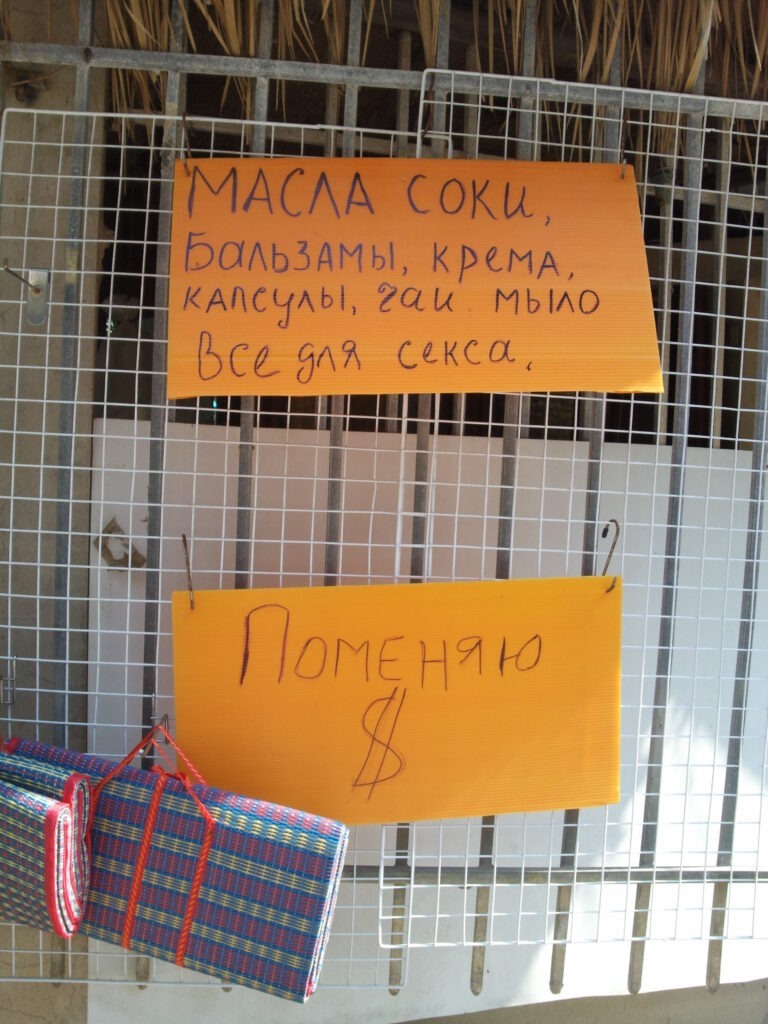 МАСЛА СОКИ,
БАЛЬЗАМЫ, КРЕМА,
КАПСУЛЫ, ЧАИ МЫЛО
ВСЕ ДЛЯ СЕКСА,
ПОМЕНЯЮ
$